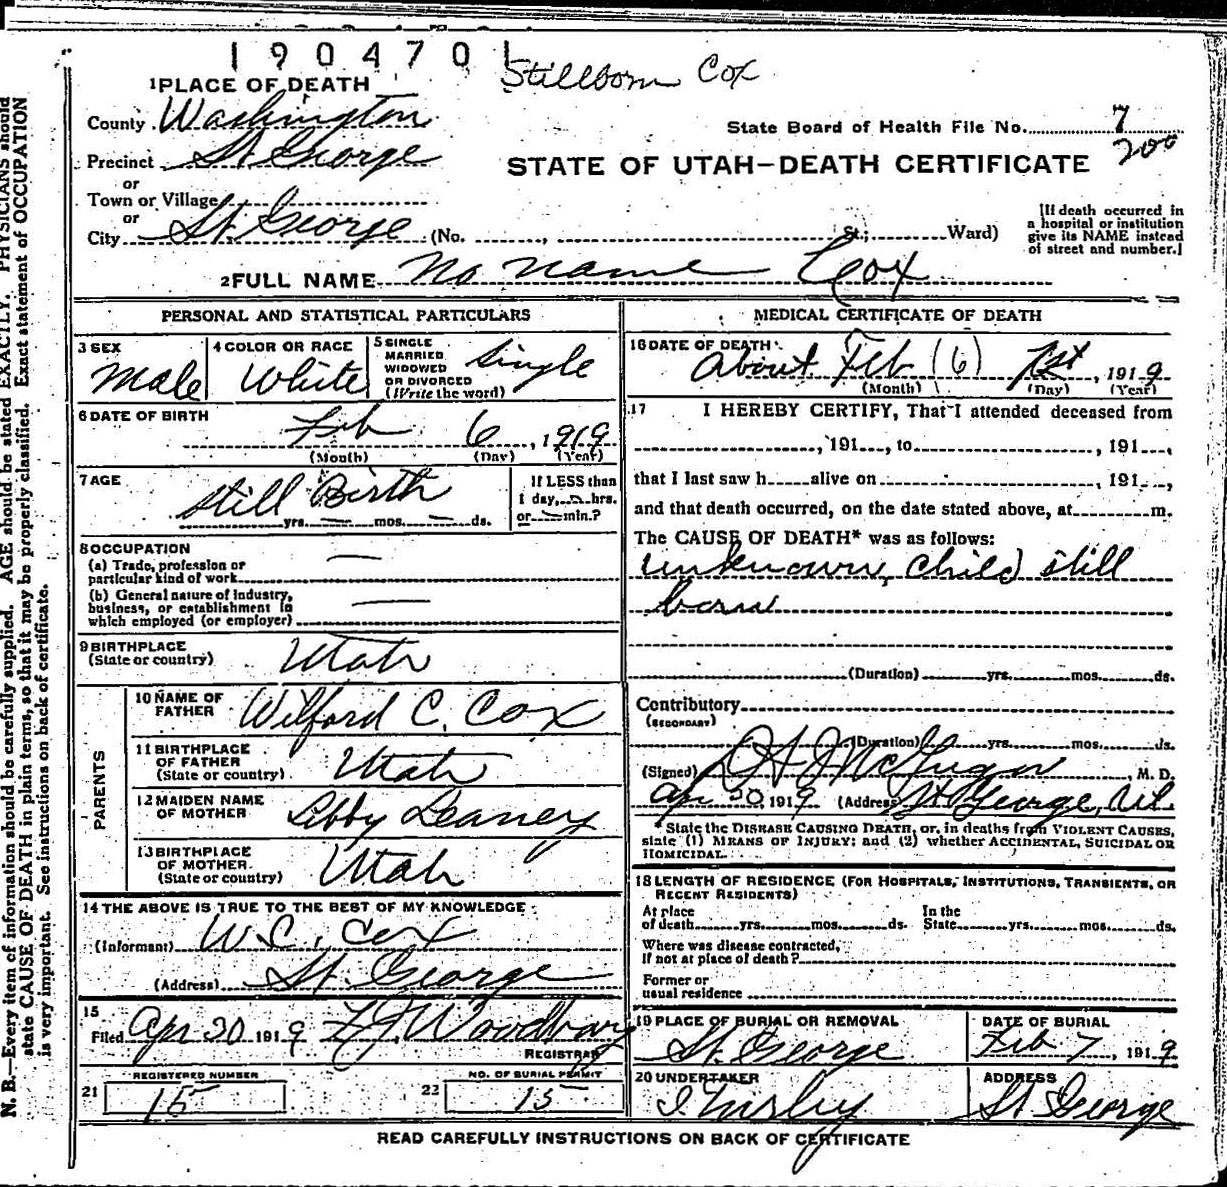 1904701
Stillborn Cox
1 PLACE OF DEATH
County Washington
State Board of Health File No. 7
200
Precinct St George
STATE OF UTAH—DEATH CERTIFICATE
or
Town or Village
or
City St. George (No. , St.; Ward)
[If death occurred in
a hospital or institution
give its NAME instead
of street and number.]
2 FULL NAME No name Cox
PERSONAL AND STATISTICAL PARTICULARS
3 SEX
Male
4 COLOR OR RACE
White
5 SINGLE
MARRIED
WIDOWED
OR DIVORCED
(Write the word)
Single
6 DATE OF BIRTH
Feb 6, 1919
(Month) (Day) (Year)
7 AGE
Still Birth
yrs. mos. ds.
If LESS than
1 day, hrs.
or min.?
8 OCCUPATION
(a) Trade, profession or
particular kind of work
(b) General nature of Industry,
business, or establishment in
which employed (or employer)
9 BIRTHPLACE
(State or country)
Utah
PARENTS
10 NAME OF
FATHER
Wilford C. Cox
11 BIRTHPLACE
OF FATHER
(State or country)
Utah
12 MAIDEN NAME
OF MOTHER
Libby Leaney
13 BIRTHPLACE
OF MOTHER
(State or country)
Utah
14 THE ABOVE IS TRUE TO THE BEST OF MY KNOWLEDGE
(Informant) W.C. Cox
(Address) St. George
15
Filed Apr 30 1919 Woodbury
REGISTRAR
REGISTERED NUMBER
21 15
NO. OF BURIAL PERMIT
22 15
MEDICAL CERTIFICATE OF DEATH
16 DATE OF DEATH
About Feb (6) 1st, 1919
(Month) (Day) (Year)
17 I HEREBY CERTIFY, That I attended deceased from
, 191 , to , 191 ,
that I last saw h alive on , 191 ,
and that death occurred, on the date stated above, at m.
The CAUSE OF DEATH* was as follows:
unknown, child still
born
(Duration) yrs. mos. ds.
Contributory
(SECONDARY)
(Duration) yrs. mos. ds.
(Signed) McGregor, M. D.
Apr 30, 1919 (Address) St George, Ut.
* State the DISEASE CAUSING DEATH, or, in deaths from VIOLENT CAUSES,
state (1) MEANS OF INJURY; and (2) whether ACCIDENTAL, SUICIDAL OR
HOMICIDAL.
18 LENGTH OF RESIDENCE (FOR HOSPITALS, INSTITUTIONS, TRANSIENTS, OR
RECENT RESIDENTS)
At place
of death yrs. mos. ds.
In the
State yrs. mos. ds.
Where was disease contracted,
If not at place of death?
Former or
usual residence
19 PLACE OF BURIAL OR REMOVAL
St. George
DATE OF BURIAL
Feb 7, 1919
20 UNDERTAKER
ADDRESS
St George
READ CAREFULLY INSTRUCTIONS ON BACK OF CERTIFICATE
N. B.—Every item of information should be carefully supplied. AGE should be stated EXACTLY. PHYSICIANS should
state CAUSE OF DEATH in plain terms, so that it may be properly classified. Exact statement of OCCUPATION
is very important. See instructions on back of certificate.